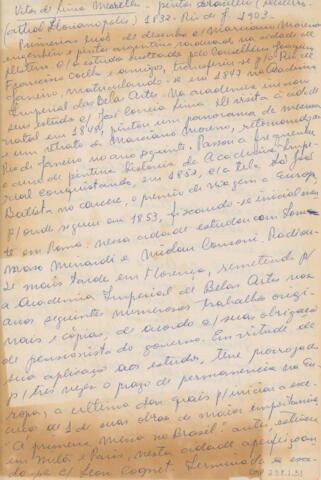 Vitor de Lima Meirelles - pintor brasileiro (Desterro,
(atual Florianópolis) 1832 - Rio de J. 1903.
Primeiras aulas de desenho c/ Marciano Moreno
engenheiro e pintor argentino radicado na cidade de
Desterro e/ou estudo custeado pelo Conselheiro Jeronymo
Francisco Coelho e amigos, transferiu-se p/o Rio de
Janeiro, matriculando-se em 1847 na Academia
Imperial das Belas Artes. Na academia iniciou
seus estudo c/ José Correia Lima. Em visita à cidade
natal em 1849, pintou um panorama de mesma
e um retrato de Marciano Moreno, retornando ao
Rio de Janeiro no ano seguinte. Passou a frequentar
o curso de pintura histórica da Academia Impe-
rial conquistando, em 1852, c/a tela São João
Batista no cárcere, o prêmio de viagem a Europa
p/onde seguiu em 1853, fixando-se inicialmen-
te em Roma; nessa cidade estudou com Tom-
maso Minardi e Nicolau Consoni. Radicou-
se mais tarde em Florença, remetendo p/
a Academia Imperial de Belas Artes nos
anos seguintes numerosos trabalhos origi-
nais e cópias, de acordo c/seus obrigação
de pensionista do governo. Em virtude de
sua aplicação aos estudos, teve prorrogado
p/três vezes o prazo de permanência na Eu-
ropa, a última das quais p/iniciar a exe-
cução de 1 de suas obras de maior importância
A primeira missa no Brasil: antes esteve
em Milão e Paris, nesta cidade aperfeiçoan
do-se c/ Léon Cogniet. Terminada a exe-
238.1.31